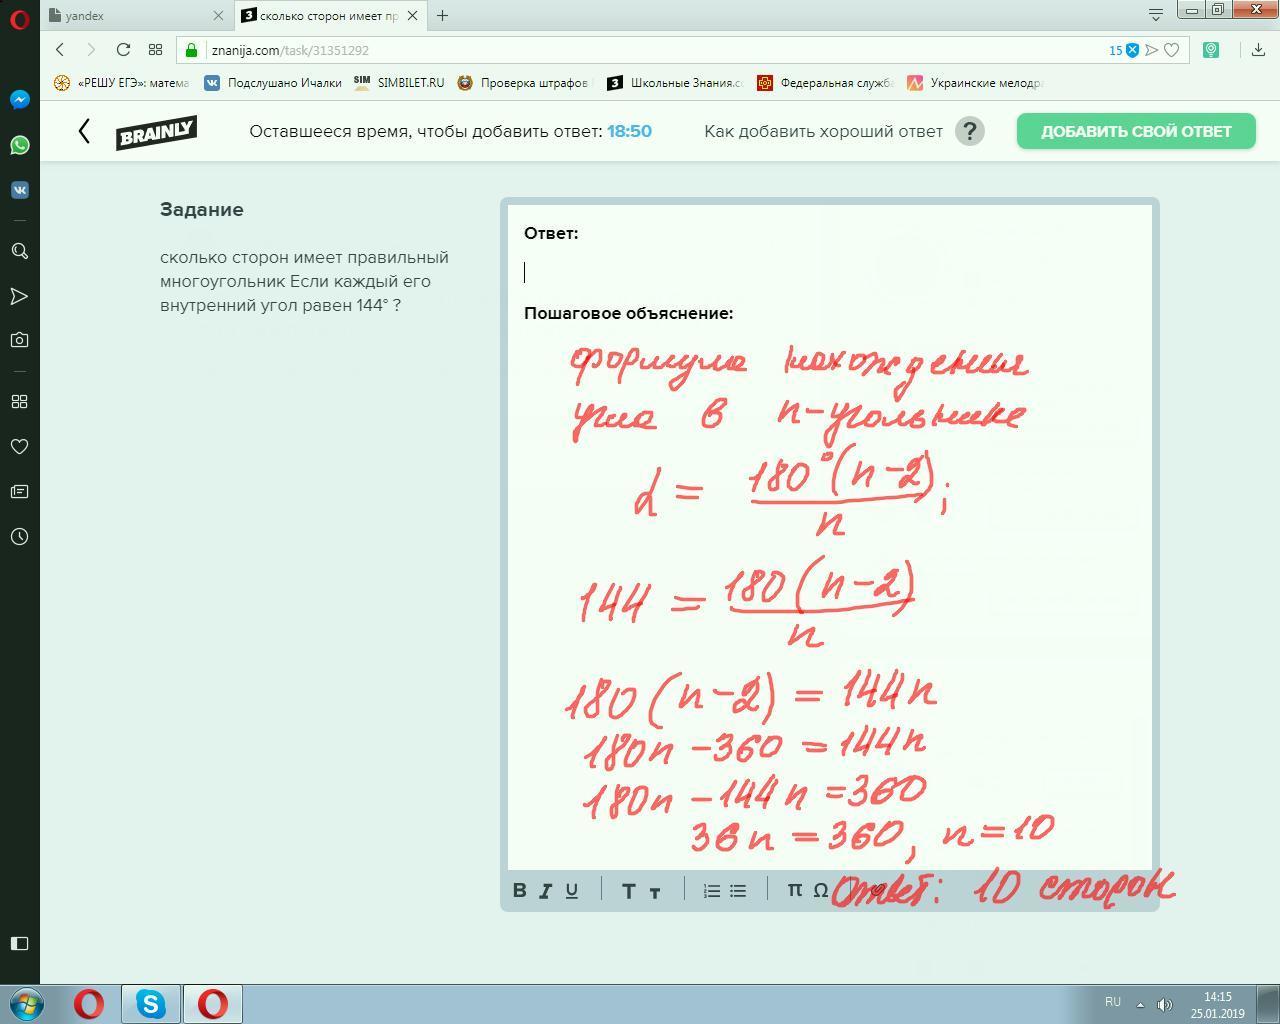 yandex
сколько сторон имеет пр
znanija.com/task/31351292
15
«РЕШУ ЕГЭ»: матема
Подслушано Ичалки
SIM SIMBILET.RU
Проверка штрафов
Школьные Знания.co
Федеральная служба
Украинские мелодра
BRAINLY
Оставшееся время, чтобы добавить ответ: 18:50
Как добавить хороший ответ ?
ДОБАВИТЬ СВОЙ ОТВЕТ
Задание
сколько сторон имеет правильный
многоугольник Если каждый его
внутренний угол равен 144° ?
Ответ:
Пошаговое объяснение:
формула нахождения
угла в n-угольнике
α = 180°(n-2)/n;
144 = 180(n-2)/n
180(n-2) = 144n
180n - 360 = 144n
180n - 144n = 360
36n = 360, n = 10
Ответ: 10 сторон
B I U T т π Ω
RU
14:15
25.01.2019